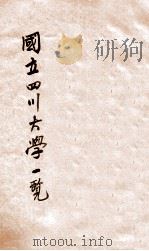 國立四川大學一覽
mtoou.info